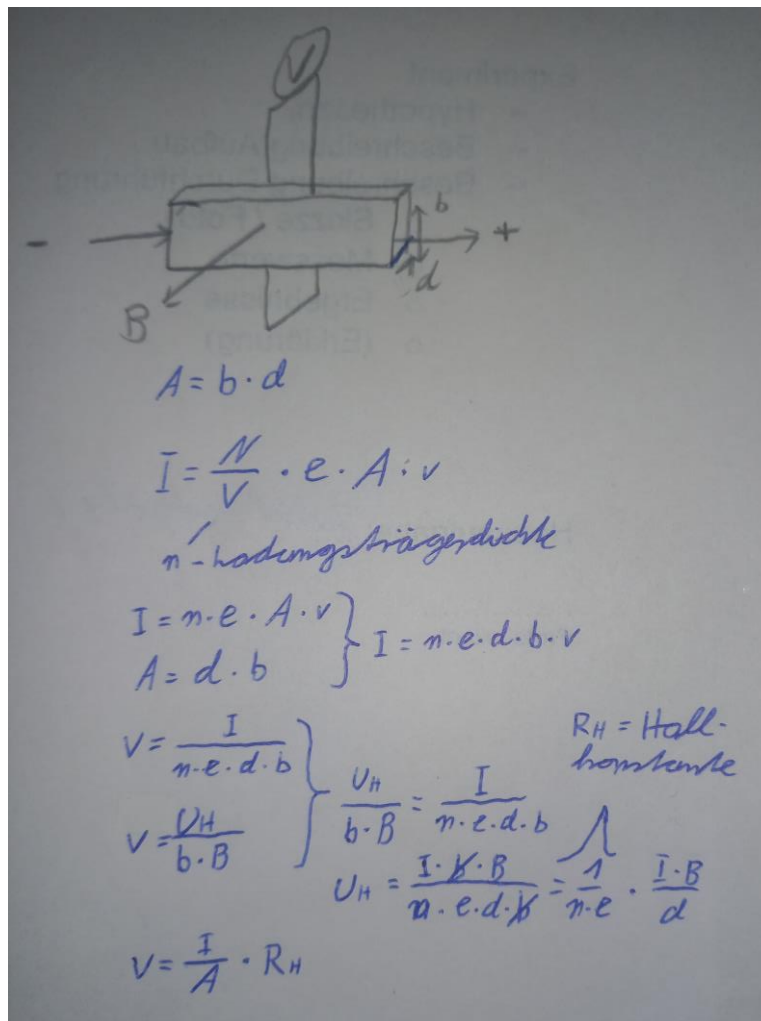 V
b
- +
d
B
A = b · d
I = N/V · e · A · v
n - Ladungsträgerdichte
I = n · e · A · v
A = d · b
I = n · e · d · b · v
v = I/(n · e · d · b)
v = U_H/(b · B)
U_H/(b · B) = I/(n · e · d · b)
R_H = Hall-
konstante
U_H = (I · b · B)/(n · e · d · b) = 1/(n · e) · (I · B)/d
v = I/A · R_H